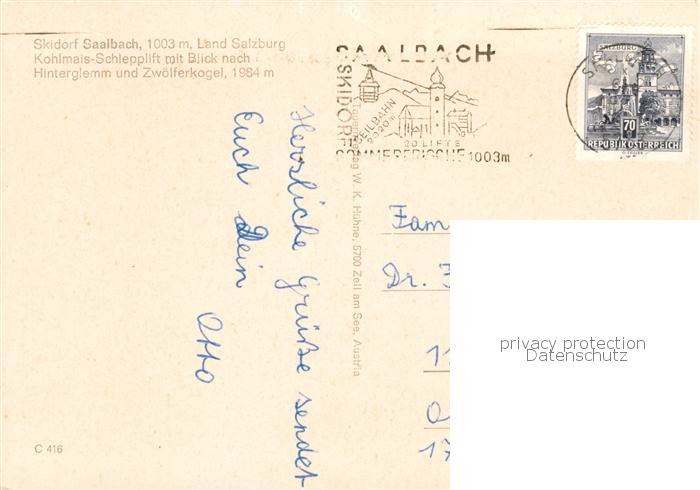 Skidorf Saalbach, 1003 m, Land Salzburg
Kohlmais-Schlepplift mit Blick nach
Hinterglemm und Zwölferkogel, 1984 m
SAALBACH
SKIDORF
SEILBAHN
2020m
20 LIFTE
SOMMERFRISCHE 1003m
SALZBURG
70
REPUBLIK ÖSTERREICH
Herzliche Grüße sendet
Euch Dein
Otto
Verlag W. K. Hühne, 5700 Zell am See, Austria
Fam
Dr.
11
17
privacy protection
Datenschutz
C 416